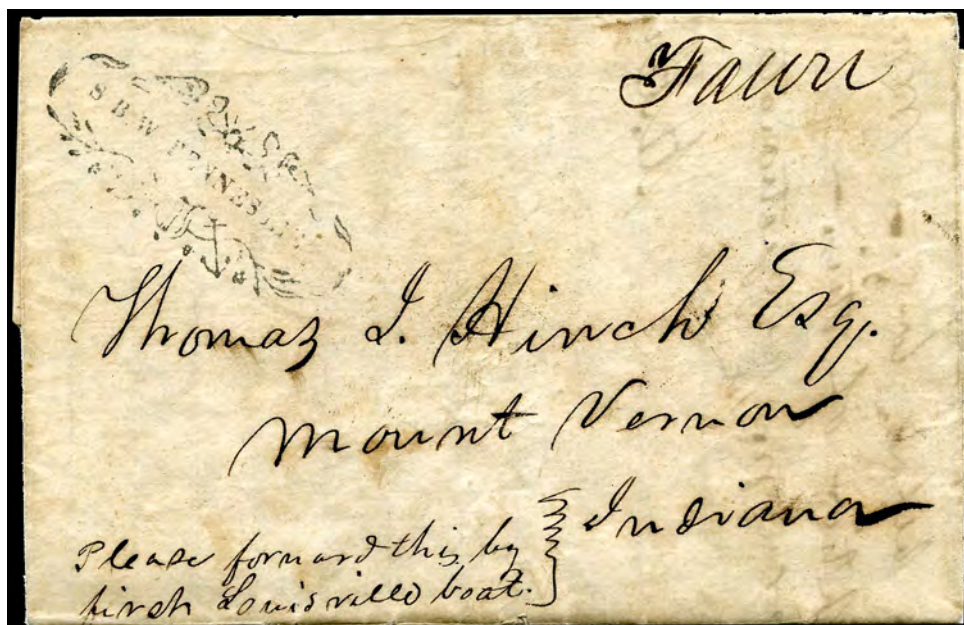 Fawn
S. B. W. TENNESSEE
Thomas I. Hinch Esq.
Mount Vernon
Indiana
Please forward this by
first Louisville boat.